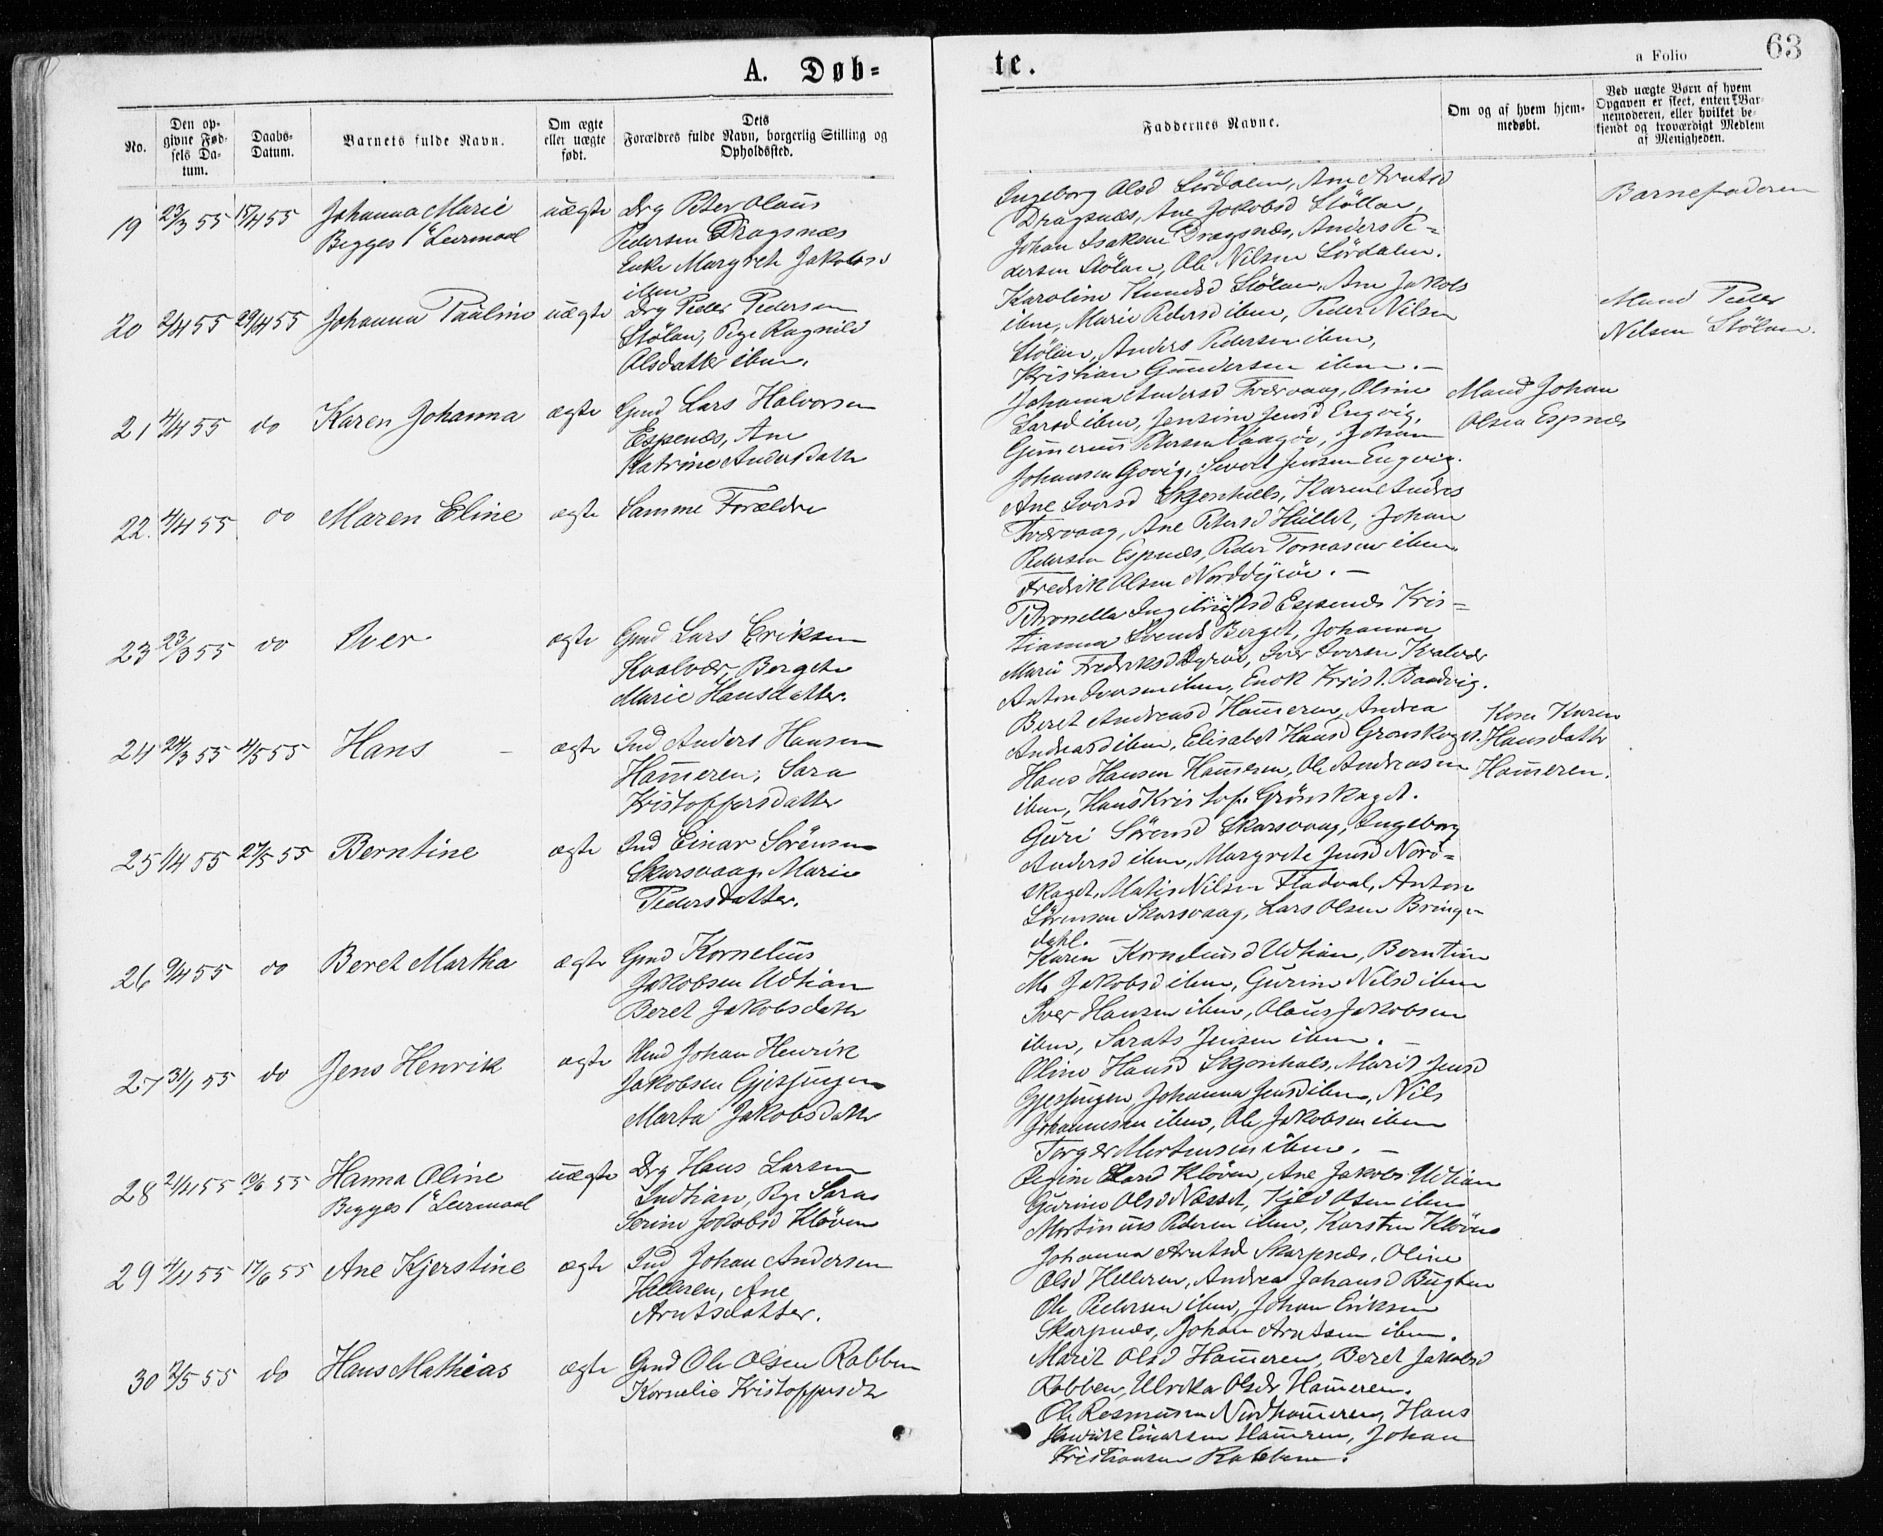 A. Døb-
te.
a Folio
63
No.
Den op-
givne Fød-
sels Da-
tum.
Daabs-
Datum.
Barnets fulde Navn.
Om ægte
eller uægte
født.
Dets
Forældres fulde Navn, borgerlig Stilling og
Opholdssted.
Faddernes Navne.
Om og af hvem hjem-
medøbt.
Ved uægte Børn af hvem
Opgaven er skeet, enten Bar-
nemoderen, eller hvilket be-
kjendt og troværdigt Medlem
af Menigheden.
19 23/3 55 15/4 55 Johanna Marie uægte Drg Peter Olaus
Begges 1ste Leiermaal Pedersen Dragsnæs
Enke Margrete Jakobsd
ibm
Ingeborg Olsd Lördalen, Ane Arntsd
Dragsnæs, Ane Jakobsd Stöllan,
Johan Isaksen Dragsnæs, Anders Pe-
dersen Stölan, Ole Nilsen Lördalen.
Barnefaderen
20 2/4 55 29/4 55 Johanna Pauline uægte Drg Peder Pedersen
Stölan, Pige Ragnild
Olsdatter ibm.
Karoline Knudsd Stölan, Ane Jakobs
ibm, Marie Pedersd ibm, Peder Nilsen
Stölan, Anders Pedersen ibm,
Kristian Gundersen ibm.-
Mand Peder
Nilsen Stölan.
21 4/4 55 do Karen Johanna ægte Gmd Lars Halvorsen
Espenæs, Ane
Katrine Andersdatter
Johanna Andersd Tværvaag, Oline
Larsd ibm, Jensine Jensd Engvig,
Gunerius Petersen Vaagöe, Johan
Johansen Govig, Sivert Jensen Engvig.
Mand Johan
Olsen Espnæs
22. 4/4 55 do Maren Eline ægte Samme Forældre
Ane Iversd Skjenhals, Karen Andrs
Tværvaag, Ane Petersd Hallet, Johan
Pedersen Espnæs, Peder Tomasen ibm
Fredrik Olsen Norddyröe.-
23 23/3 55 do Iver ægte Gmd Lars Eriksen
Kvalvær, Bergete
Marie Hansdatter.
Petronella Ingebrigtsd Espenæs Kris-
tianna Svends Berget, Johanna
Marie Fredriksd Dyröe, Iver Iversen Kvalvær
Anton Iversen ibm, Enok Krist. Baadvig.
24 24/3 55 4/5 55 Hans - ægte Ind Anders Hansen
Hameren, Sara
Kristoffersdatter
Beret Andreasd Hameren, Andrea
Andreasd ibm, Elisabet Hansd Grönskaget.
Hans Hansen Hameren, Ole Andreasen
ibm, Hans Kristof. Grönskaget.
Kone Karen
Hansdatter
Hameren.
25 1/4 55 27/5 55 Berntine ægte Ind Einar Sörensen
Skarsvaag, Marie
Pedersdatter.
Guri Sörensd Skarsvaag, Ingeborg
Andersd ibm, Margrete Jensd Nord-
skaget, Matis Nilsen Fladval, Anton
Sörensen Skarsvaag, Lars Olsen Bringe-
dahl.
26 9/4 55 do Beret Martha ægte Gmd Kornelius
Jakobsen Udtian
Beret Jakobsdatter
Karen Korneliusd Udtian, Berntine
M. Jakobsd ibm, Gurine Nilsd ibm
Iver Hansen ibm, Olaus Jakobsen
ibm, Sarats Jensen ibm.-
27 31/1 55 do Jens Henrik ægte Hmd Johan Henrik
Jakobsen Gjessingen
Marta Jakobsdatter
Oline Hansd Skjenhals, Marit Jensd
Gjessingen Johanna Jensd ibm, Nils
Johannesen ibm, Ole Jakobsen ibm
Torger Mortensen ibm.-
28 2/4 55 10/6 55 Hanna Oline uægte Drg Hans Larsen
Begges 1ste Leiermaal Indtian, Pige Sara
Serine Jakobsd Klöven
Regine Larsd Klöven, Ane Jakobs Udtian
Gurine Olsd Næsset, Kjeld Olsen ibm
Martinus Pedersen ibm, Karsten Klöven
29 4/4 55 17/6 55 Ane Kjerstine ægte Ind Johan Andersen
Helleren, Ane
Arntsdatter.
Johanna Arntsd Skarpnæs, Oline
Olsd Helleren, Andrea Johansd Bugten
Ole Pedersen ibm, Johan Eriksen
Skarpnæs, Johan Arntsen ibm.
30 2/5 55 do Hans Mathias ægte Gmd Ole Olsen Rabben
Kornelie Kristoffersdtr
Marit Olsd Hameren, Beret Jakobsd
Rabben, Ulrika Olsdr Hameren.
Ole Rasmusen Nordhameren, Hans
Henrik Einarsen Hameren, Johan
Kristiansen Rabben.